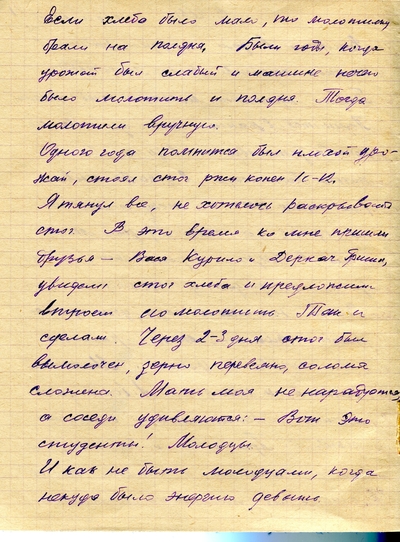 Если хлеба было мало, то молотилку
брали на полдня. Были года, когда
урожай был слабый и машине нечего
было молотить и полдня. Тогда
молотили вручную.
Одного года помнится был плохой уро-
жай, стоял стог ржи копен
Я тянул все, не хотелось раскрывать
стог. В это время ко мне пришли
друзья – Вася Курило и Деркач Гриша,
увидели стог хлеба и предложили
втроем его молотить. Так и
сделали. Через 2-3 дня стог был
вымолочен, зерно перевеяно, солома
сложена. Мать моя не нарадуется,
а соседи удивляются: – Вот это
студенты! Молодцы.
И как не быть молодцами, когда
некуда было энергию девать.